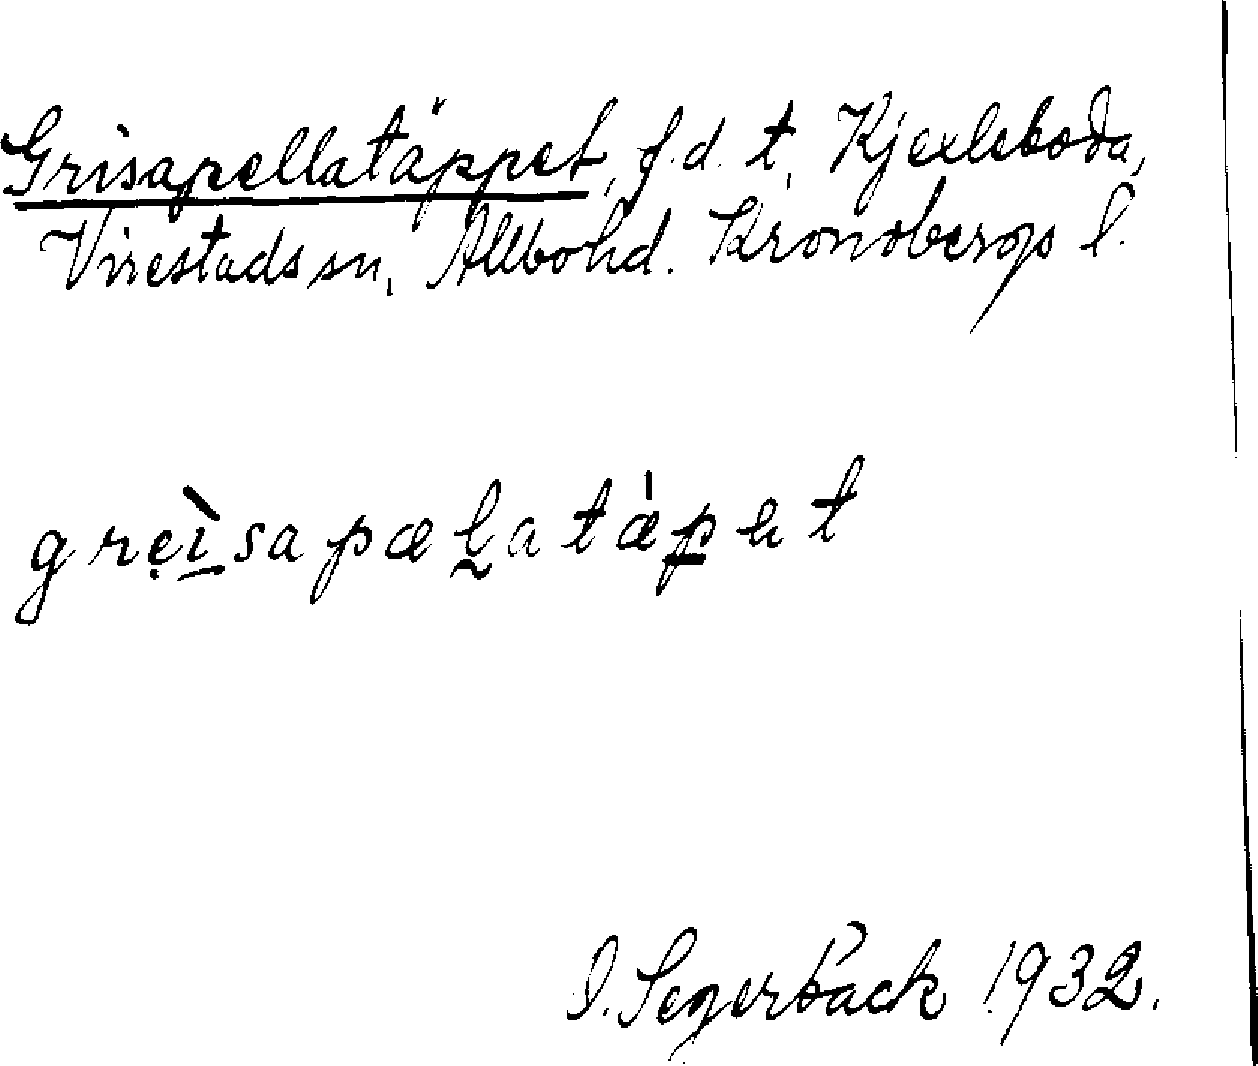 Grisapellatäppet, f.d. t. Kjexleboda,
Virestads sn, Allbo hd. Kronobergs l.
grẹì̠sapæl̰atæ̍p̠ət
I. Segerbäck 1932.